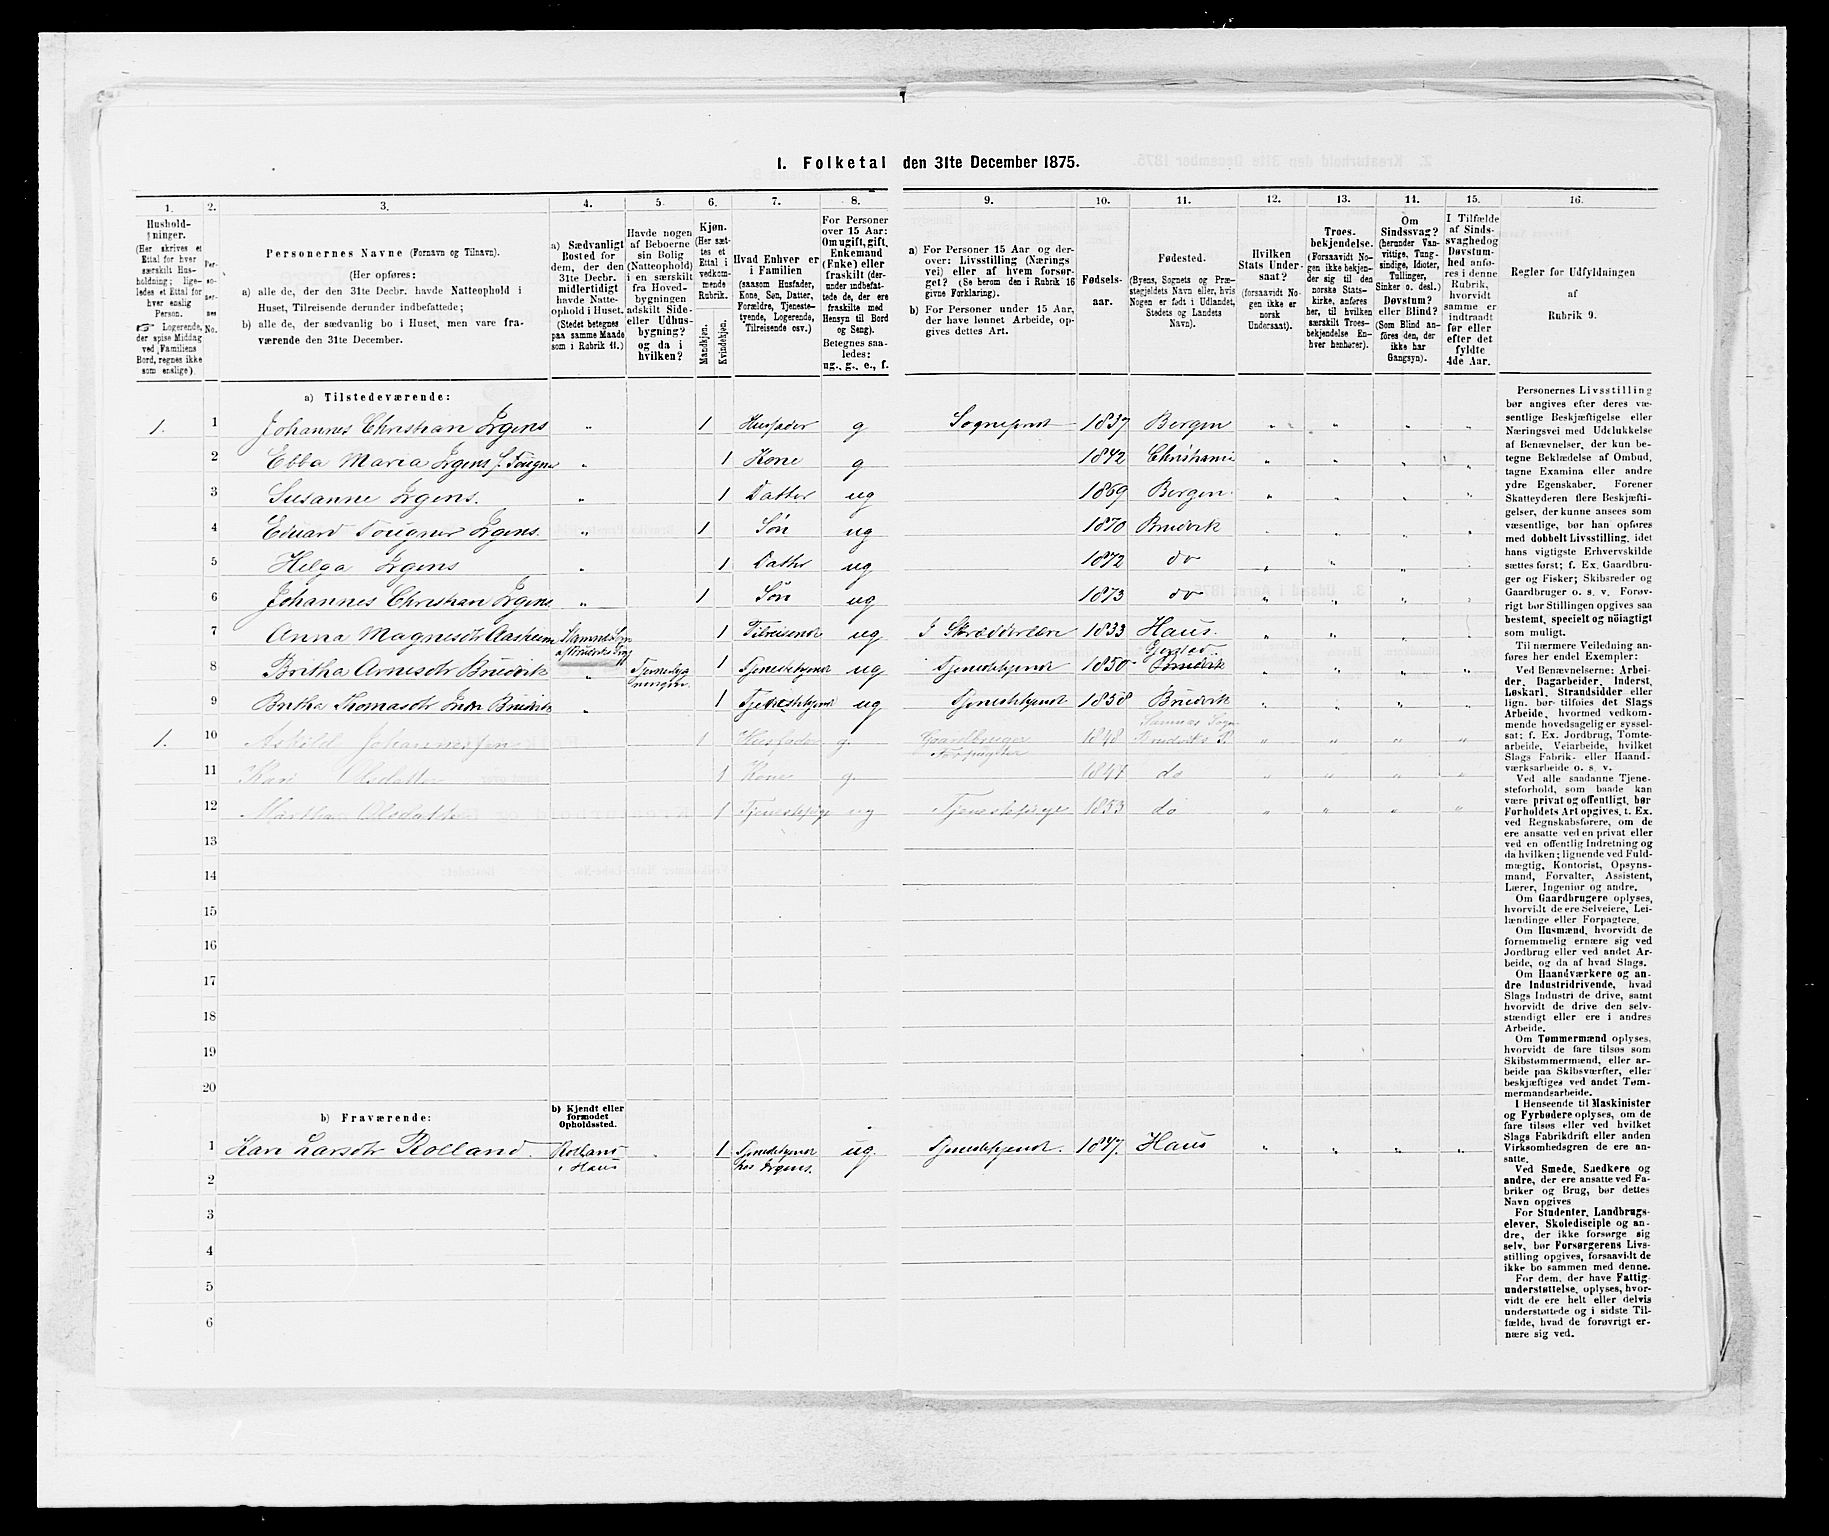 1. Folketal den 31te December 1875.
1. 2. 3. 4. 5. 6. 7. 8. 9. 10. 11. 12. 13. 14. 15. 16.
Hushold-
ninger.
(Her skrives et
Ettal for hver
særskilt Hus-
holdning; lige-
ledes et Ettal for
hver enslig
Person.
☞ Logerende,
der spise Middag
ved Familiens
Bord, regnes ikke
som enslige).
Per-
so-
ner-
nes
No.
Personernes Navne (Fornavn og Tilnavn).
(Her opføres:
a) alle de, der den 31te Decbr. havde Natteophold i
Huset, Tilreisende derunder indbefattede;
b) alle de, der sædvanlig bo i Huset, men vare fra-
værende den 31te December.
a) Sædvanligt
Bosted for
dem, der den
31te Decbr.
midlertidigt
havde Natte-
ophold i Huset.
(Stedet betegnes
paa samme Maade
som i Rubrik 11.)
Havde nogen
af Beboerne
sin Bolig
(Natteophold)
i en særskilt
fra Hoved-
bygningen
adskilt Side-
eller Udhus-
bygning?
og da i
hvilken?
Kjøn.
(Her sæt-
tes et
Ettal i
vedkom-
mende
Rubrik.
Mandkjøn.
Kvindekjøn.
Hvad Enhver er
i Familien
(saasom Husfader,
Kone, Søn, Datter,
Forældre, Tjeneste-
tyende, Logerende,
Tilreisende osv.)
For Personer
over 15 Aar:
Om ugift, gift,
Enkemand
(Enke) eller
fraskilt (der-
under indbefat-
tede de, der ere
fraskilte med
Hensyn til Bord
og Seng).
Betegnes saa-
ledes:
ug., g., e., f.
a) For Personer 15 Aar og der-
over: Livsstilling (Nærings
vei) eller af hvem forsør-
get? (Se herom den i Rubrik 16
givne Forklaring).
b) For Personer under 15 Aar,
der have lønnet Arbeide, op-
gives dettes Art.
Fødsels-
aar.
Fødested.
(Byens, Sognets og Præ-
stegjeldets Navn eller, hvis
Nogen er født i Udlandet,
Stedets og Landets
Navn).
Hvilken
Stats Under-
saat?
(forsaavidt No-
gen ikke er
norsk
Undersaat).
Troes-
bekjendelse.
(Forsaavidt No-
gen ikke bekjen-
der sig til den
norske Stats-
kirke, anføres
her, til hvilken
særskilt Troes-
bekjendelse En-
hver henhører).
Om
Sindssvag?
(herunder Van-
vittige, Tung-
sindige, Idioter,
Tullinger,
Sinker o. desl.)
Døvstum?
eller Blind?
(Som Blind an-
føres den, der
ikke har
Gangsyn).
I Tilfælde
af Sinds-
svaghed og
Døvstum-
hed anfø-
res i denne
Rubrik,
hvorvidt
samme er
indtraadt
før eller
efter det
fyldte
4de Aar.
Regler for Udfyldningen
af
Rubrik 9.
a) Tilstedeværende:
1. 1 Johannes Christian Irgens " 1 Husfader g Sogneprest 1837 Bergen " " " "
2 Ebba Maria Irgens f. Fougner " 1 Kone g 1842 Christiania " " " "
3 Susanne Irgens. " 1 Datter ug 1869 Bergen " " " "
4 Eduard Fougner Irgens. " 1 Søn ug 1870 Bruvik " " " "
5 Helga Irgens " 1 Datter ug 1872 do " " " "
6 Johannes Christian Irgens " 1 Søn ug 1873 do " " " "
7 Anna Magnesdtr Aasheim 1 Tilreisende ug I Skrædderlære 1833 Haus. " " " "
8 Britha Arnesdtr Bruvik " 1 Tjenestetyende ug Tjenestetyende 1850 " " " "
9 Britha Thomasdtr Indre Bruvik " 1 Tjenestetyende ug Tjenestetyende 1858 Bruvik " " " "
1. 10 Askild Johannessen 1 Husfader g. Gaardbruger Forpagter 1848 Samnas Sogn Bruviks P. " " " "
11 Kari Olsdatter 1 Kone g. 1847 do " " " "
12 Martha Olsdatter 1 Tjenestepige ug Tjenestepige 1853 do " " " "
13
14
15
16
17
18
19
20
b) Fraværende:
b) Kjendt eller
formodet
Opholdssted.
1 Kari Larsdtr Rolland. Rolland i Haus " 1 Tjenestetyende hos Irgens. ug. Tjenestetyende. 1847. Haus " " " "
2
3
4
5
6
Personernes Livsstilling
bør angives efter deres væ-
sentlige Beskjæftigelse eller
Næringsvei med Udelukkelse
af Benævnelser, der kun be-
tegne Beklædelse af Ombud,
tagne Examina eller andre
ydre Egenskaber. Forener
Skatteyderen flere Beskjæfti-
gelser, der kunne ansees som
væsentlige, bør han opføres
med dobbelt Livsstilling, idet
hans vigtigste Erhvervskilde
sættes først; f. Ex. Gaardbru-
ger og Fisker; Skibsreder og
Gaardbruger o. s. v. Forøv-
rigt bør Stillingen opgives saa
bestemt, specielt og nøiagtigt
som muligt.
Til nærmere Veiledning an-
føres her endel Exempler:
Ved Benævnelserne: Arbei-
der, Dagarbeider, Inderst,
Løskarl, Strandsidder eller
lign. bør tilføies det Slags
Arbeide, hvormed vedkom-
mende hovedsagelig er syssel-
sat; f. Ex. Jordbrug, Tomte-
arbeide, Veiarbeide, hvilket
Slags Fabrik- eller Haand-
værksarbeide o. s. v.
Ved alle saadanne Tjene-
steforhold, som baade kan
være privat og offentligt, bør
Forholdets Art opgives, t. Ex.
ved Regnskabsførere, om de
ere ansatte ved en privat eller
ved en offentlig Indretning og
da hvilken; lignende ved Fuld-
mægtig, Kontorist, Opsyns-
mand, Forvalter, Assistent,
Lærer, Ingeniør og andre.
Om Gaardbrugere oplyses,
hvorvidt de ere Selveiere, Lei-
lændinge eller Forpagtere.
Om Husmænd, hvorvidt de
fornemmelig ernære sig ved
Jordbrug eller ved andet Ar-
beide, og da af hvad Slags.
Om Haandværkere og an-
dre Industridrivende, hvad
Slags Industri de drive, samt
hvorvidt de drive den selv-
stændigt eller ere i andres
Arbeide.
Om Tømmermænd oplyses,
hvorvidt de fare tilsøs som
Skibstømmermænd, eller ar-
beide paa Skibsværfter, eller
beskjæftiges ved andet Tøm-
mermandsarbeide.
I Henseende til Maskinister
og Fyrbødere oplyses, om de
fare tilsøs eller ved hvilket
Slags Fabrikdrift eller anden
Virksomhedsgren de ere an-
satte.
Ved Smede, Snedkere og
andre, der ere ansatte ved Fa-
briker og Brug, bør dettes
Navn opgives
For Studenter, Landbrugs-
elever, Skoledisciple og an-
dre, der ikke forsørge sig
selv, bør Forsørgerens Livs-
stilling opgives, forsaavidt de
ikke bo sammen med denne.
For dem, der have Fattig-
understøttelse, oplyses, hvor-
vidt de ere helt eller delvis
understøttede og i sidste Til-
fælde, hvad de forøvrigt er-
nære sig ved.